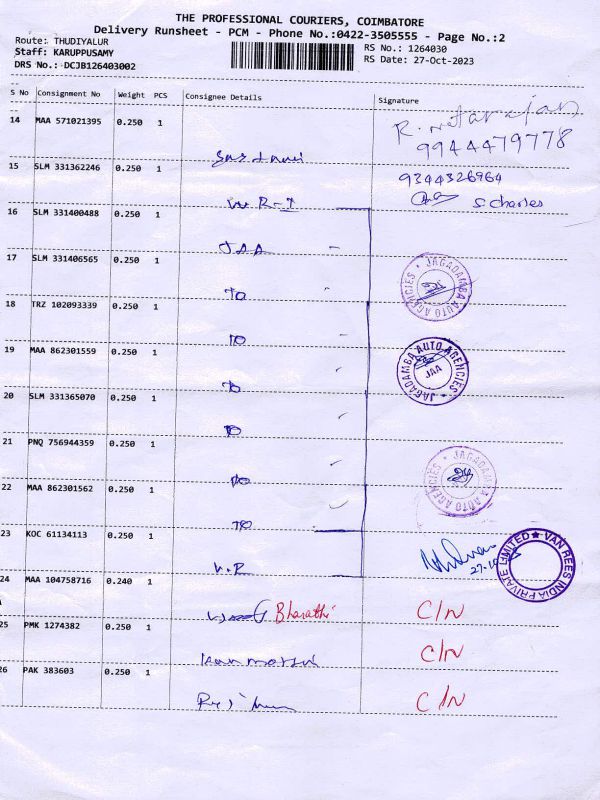 THE PROFESSIONAL COURIERS, COIMBATORE
Delivery Runsheet - PCM - Phone No.:0422-3505555 - Page No.:2
Route: THUDIYALUR
RS No.: 1264030
Staff: KARUPPUSAMY
RS Date: 27-Oct-2023
DRS No.: DCJB126403002
S No Consignment No Weight PCS Consignee Details Signature
14 MAA 571021395 0.250 1
9944479778
15 SLM 331362246 0.250 1 9344326964
S. Charles
16 SLM 331400488 0.250 1
JAA
17 SLM 331406565 0.250 1 JAGADAMBA AUTO AGENCIES
18 TRZ 102093339 0.250 1
19 MAA 862301559 0.250 1 JAGADAMBA AUTO AGENCIES JAA
20 SLM 331365070 0.250 1
21 PNQ 756944359 0.250 1 JAGADAMBA AUTO AGENCIES
22 MAA 862301562 0.250 1
23 KOC 61134113 0.250 1 VAN REES INDIA PRIVATE LIMITED
24 MAA 104758716 0.240 1 Bharathi C/N
25 PMK 1274382 0.250 1 C/N
26 PAK 383603 0.250 1 C/N